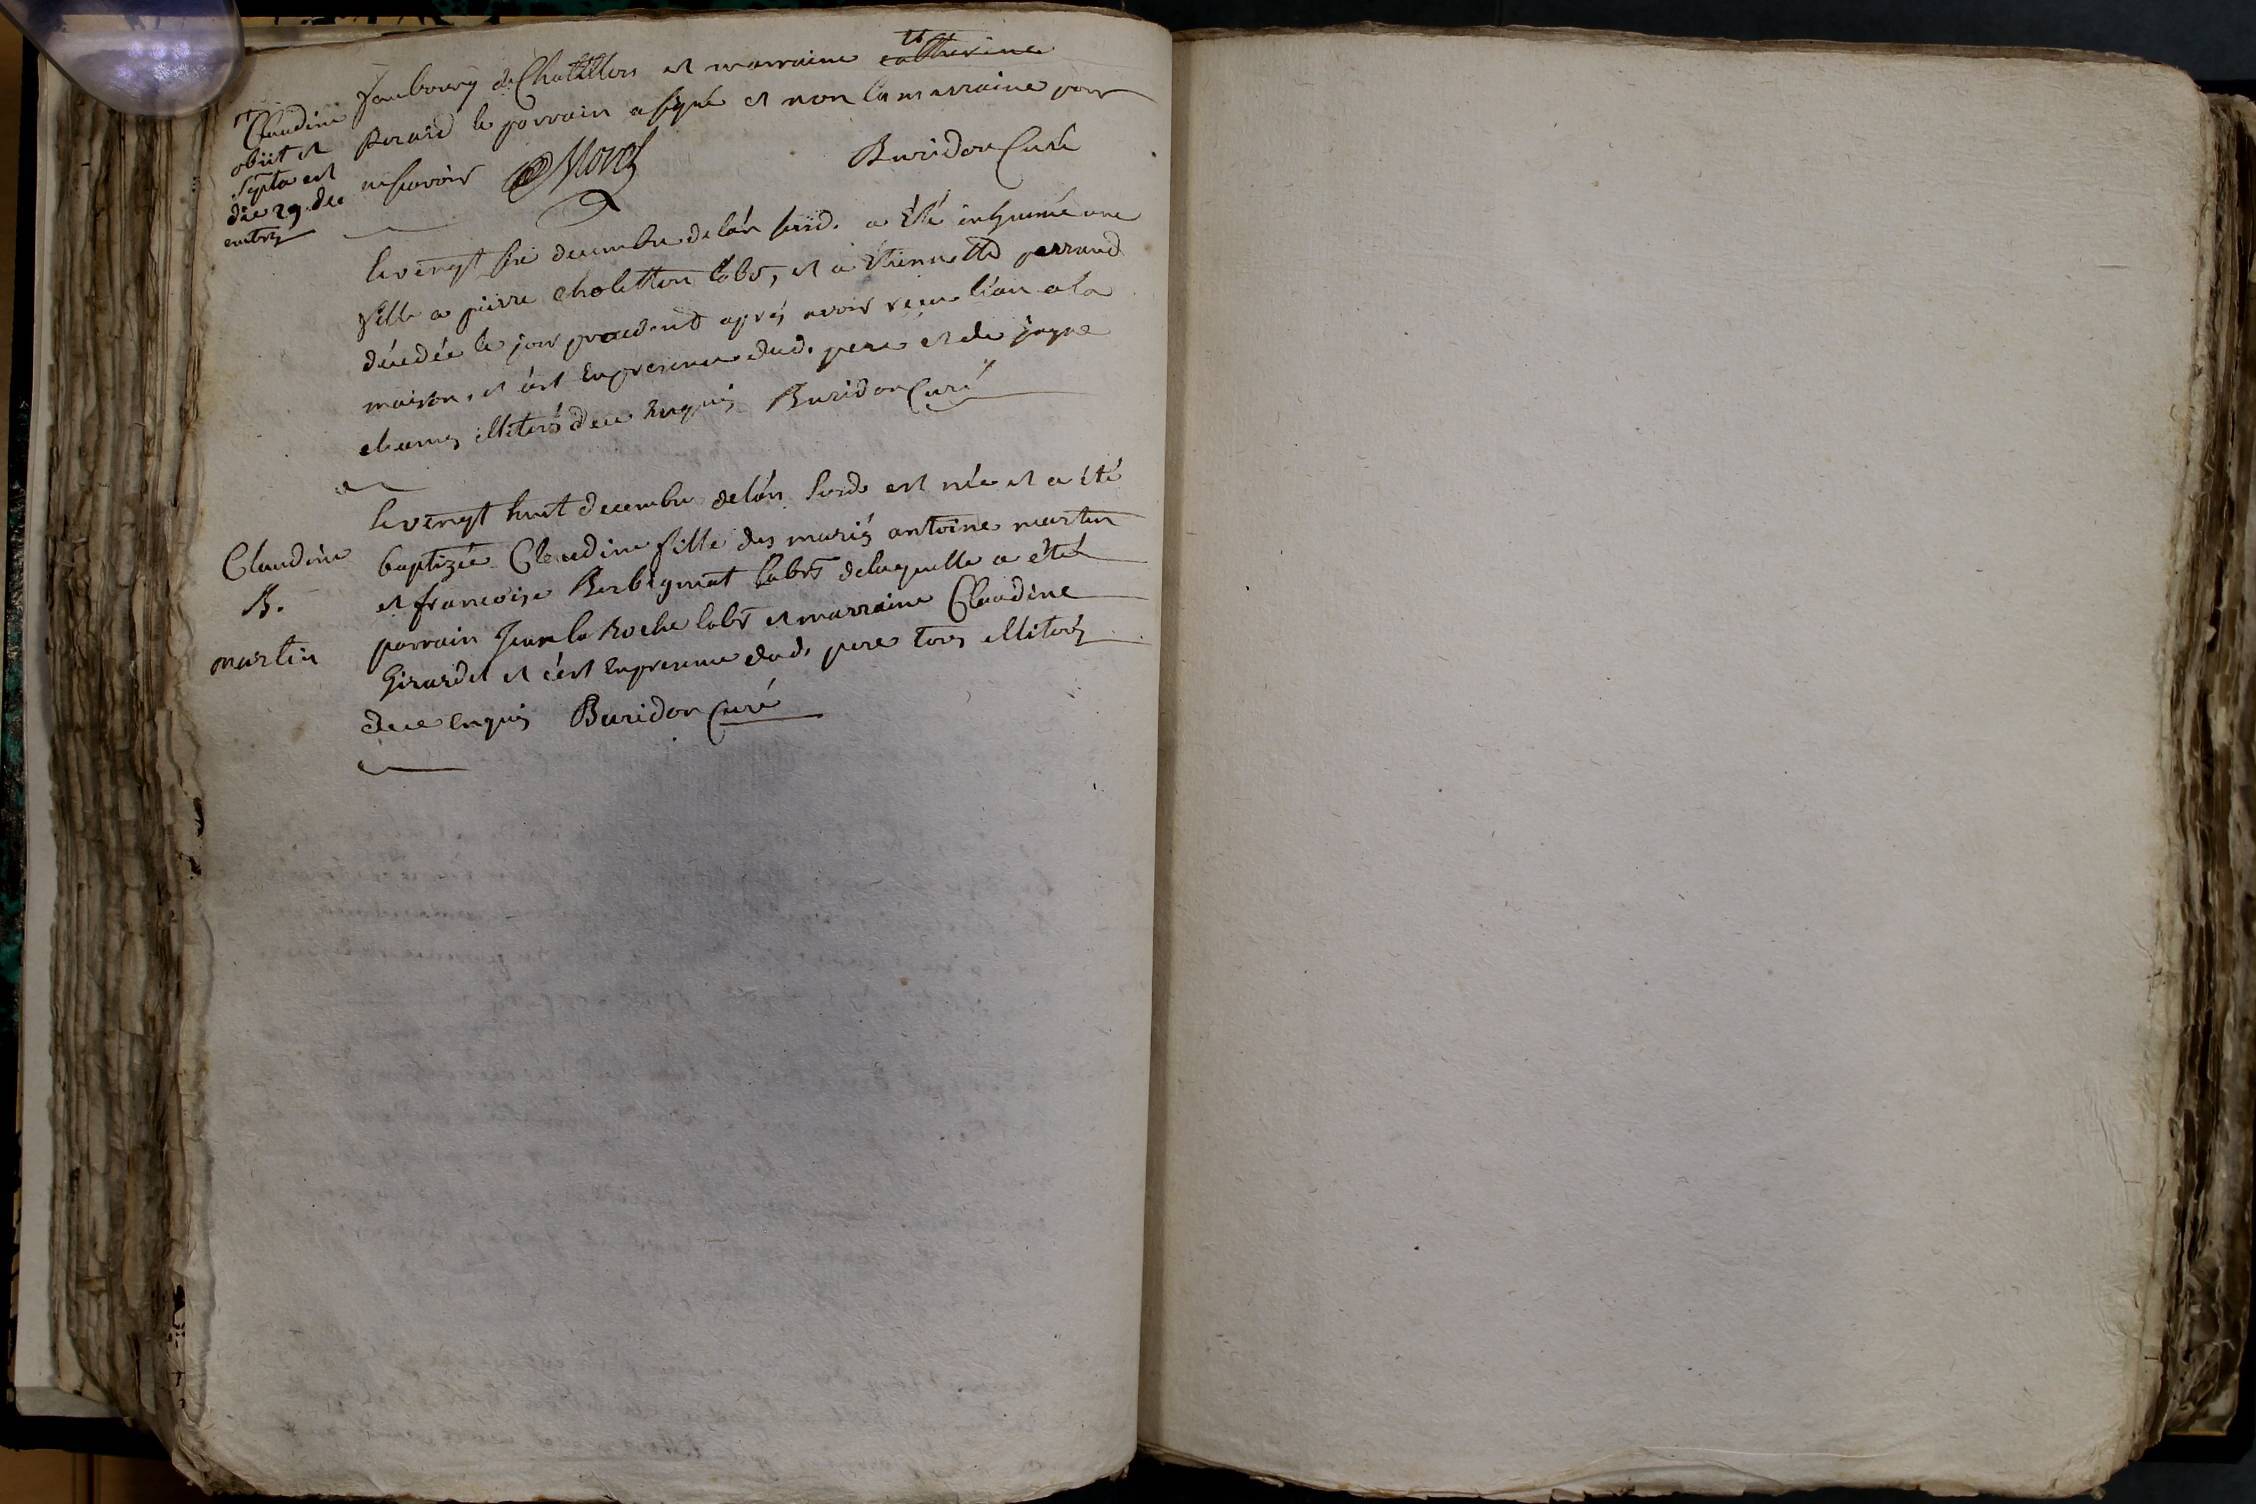 faubourg de Chatillon et marraine catherine
Claudine
obiit et
septa est
die 29 de
cembris
Perard le parrain a signé et non la marraine pour
ne scavoir Morel Buridon Curé
le vengt six decembre de lán susd. a été inhumée une
fille a pierre choletton labr, et a Etiennette perraud
décedée le jour precedent aprés avoir reçu l'eau a la
maison, et c'est en presence dud. pere et de
illiterés de ce enquis Buridon Curé
le vengt huit decembre de lán susd. est née et a été
Claudine
B.
martin
baptizée Claudine fille des mariés antoine martin
et francoise Berbignat labrs de laquelle a été
parrain Jean la Roche labr et marraine Claudine
Girardet et c'est en presence dud. pere tous illiterés
de ce enquis Buridon Curé